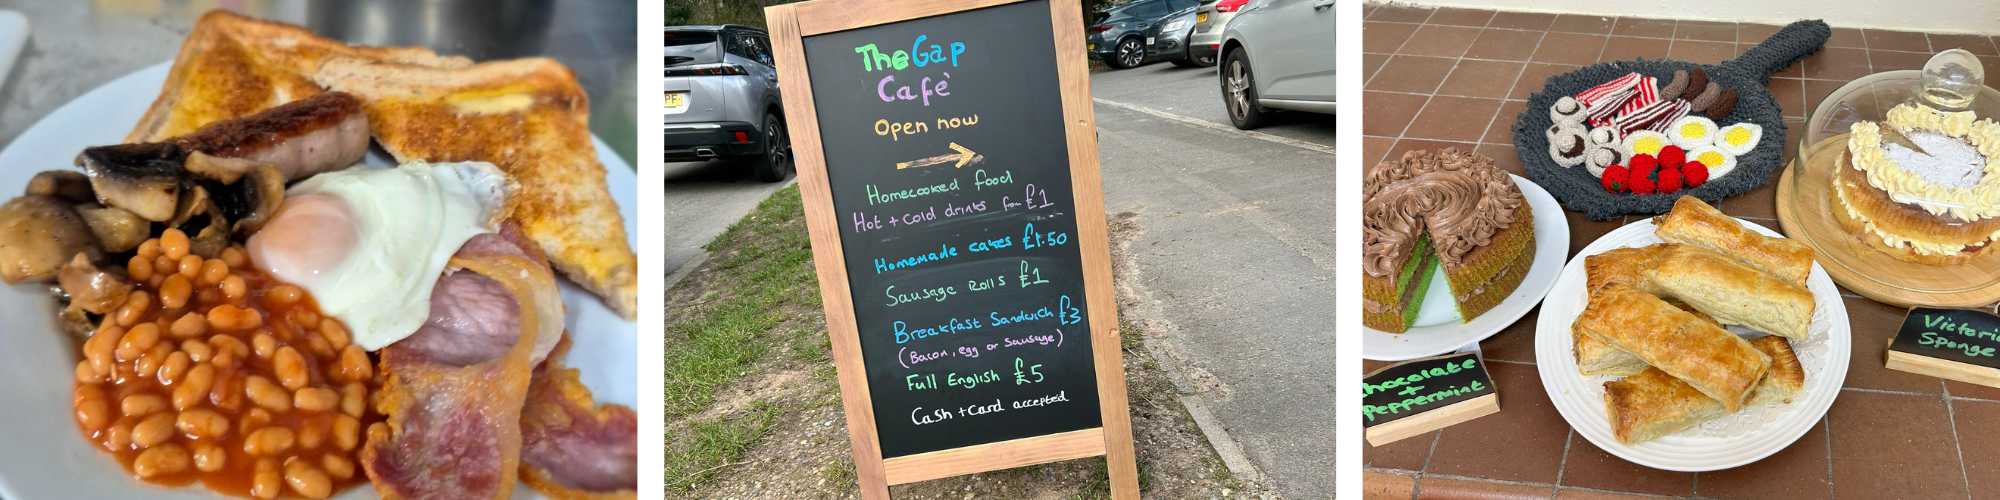 The Gap
Cafè
Open now
Homecooked food
Hot + cold drinks from £1
Homemade cakes £1.50
Sausage Rolls £1
Breakfast Sandwich £3
(Bacon, egg or Sausage)
Full English £5
Cash + Card accepted
Chocolate
+
Peppermint
Victoria
Sponge